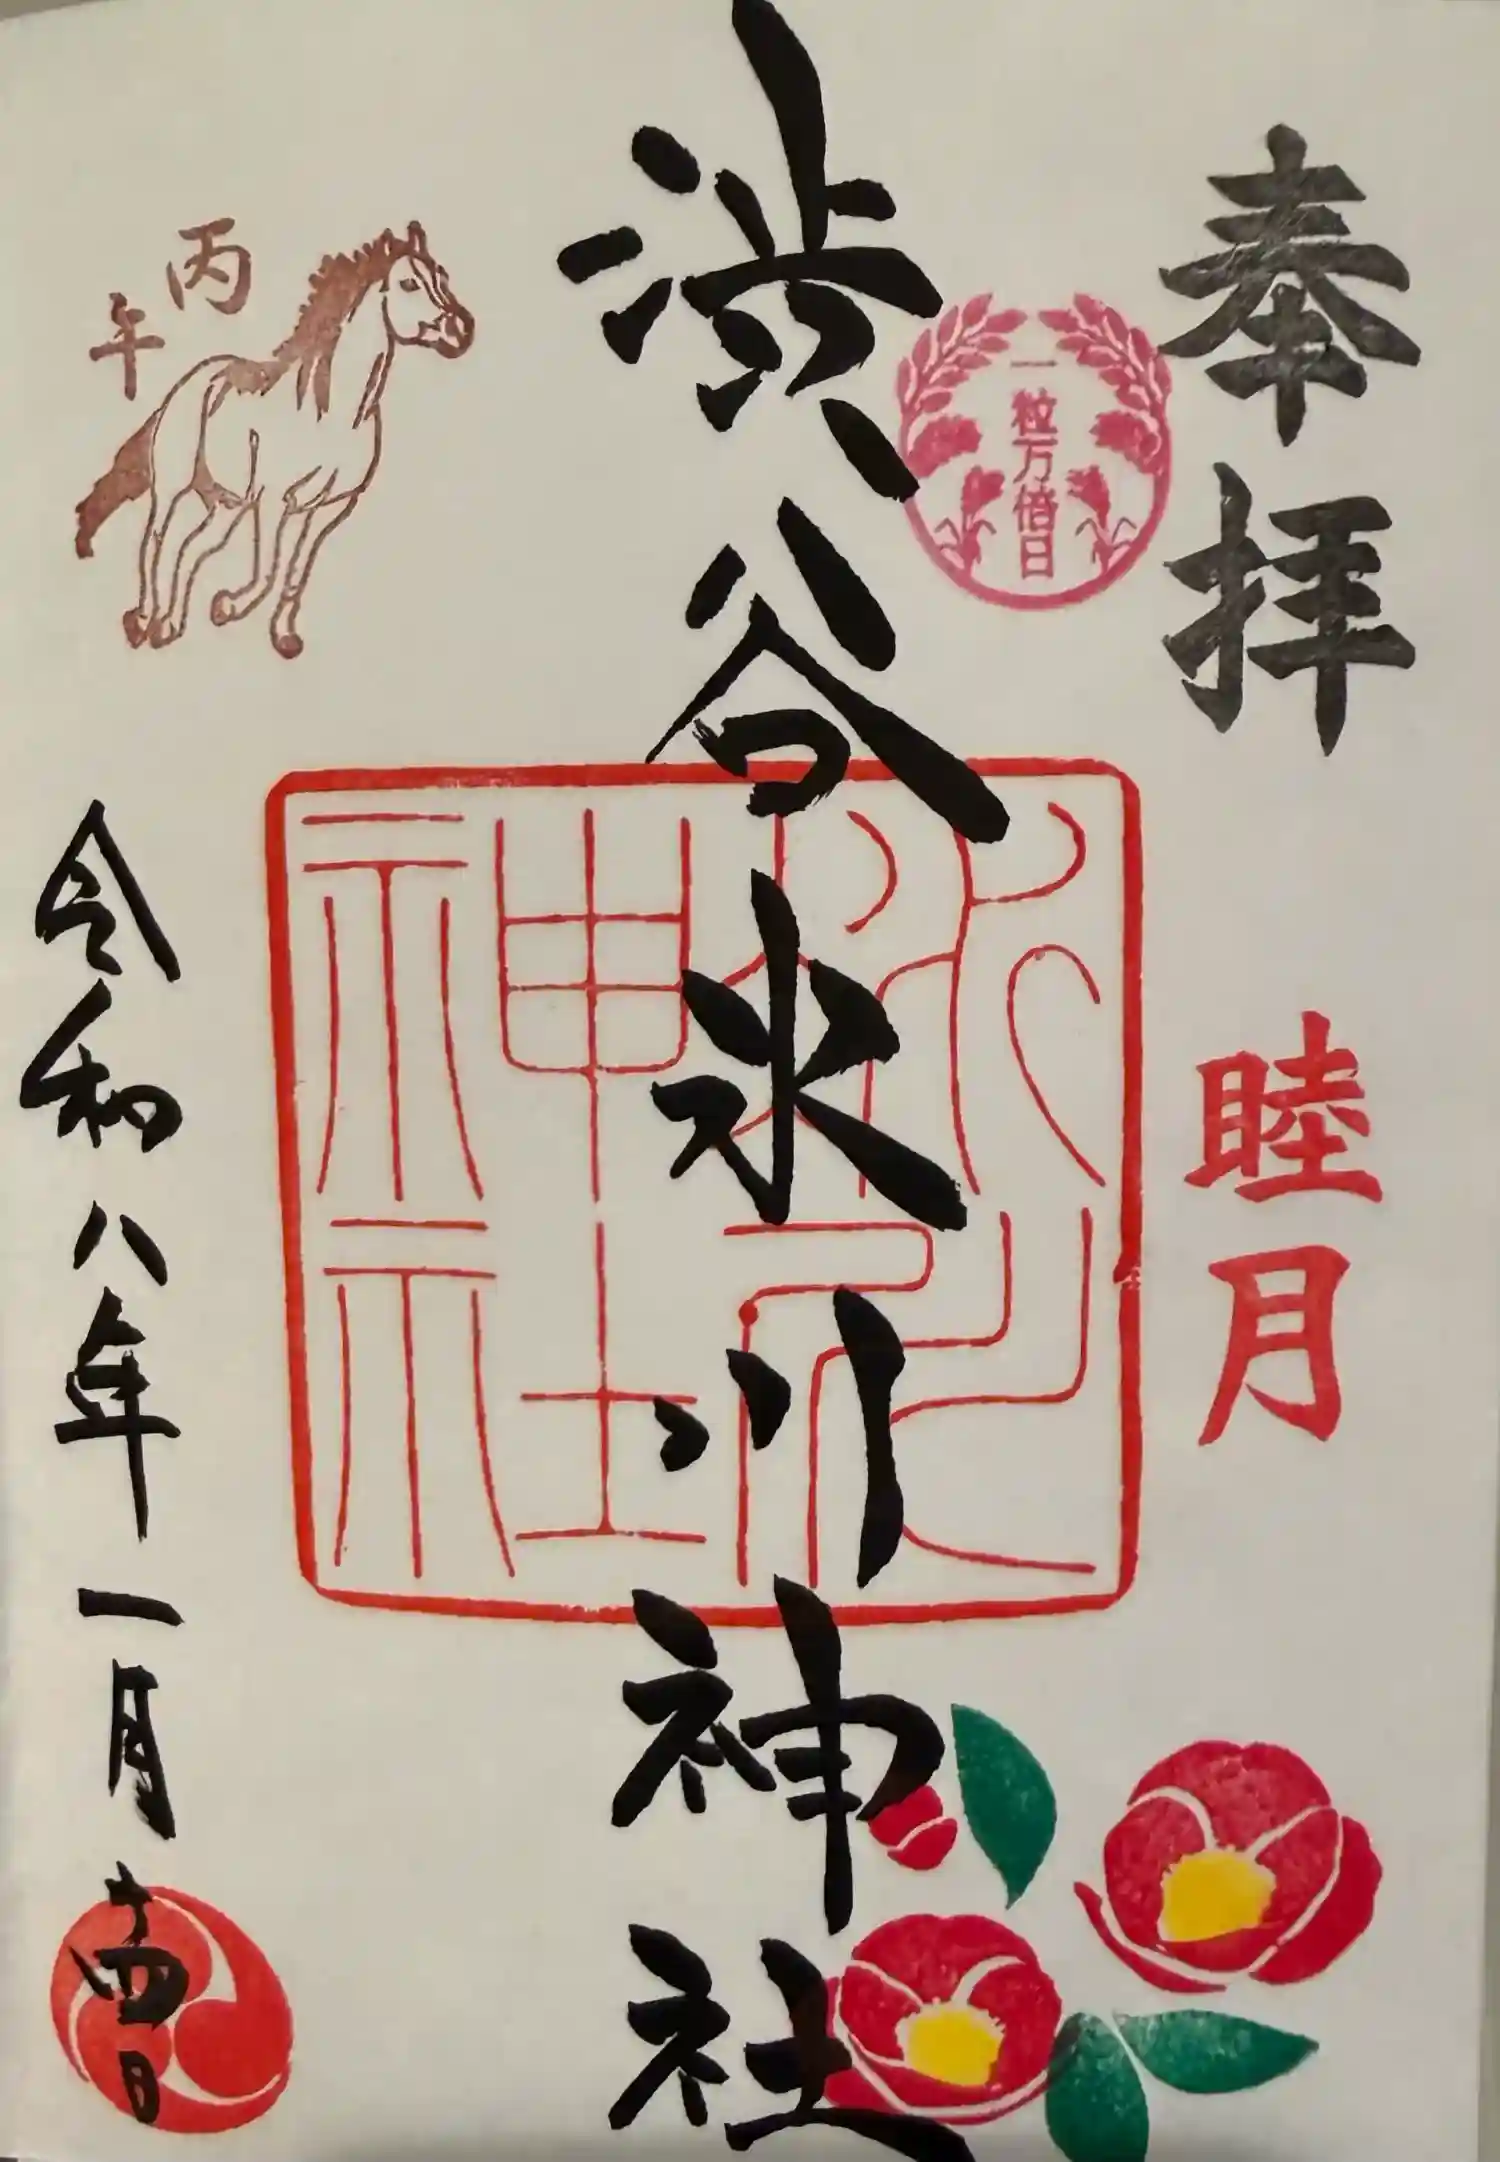 奉拝
睦月
一粒万倍日
渋谷氷川神社
氷川神社
丙午
令和八年一月十四日